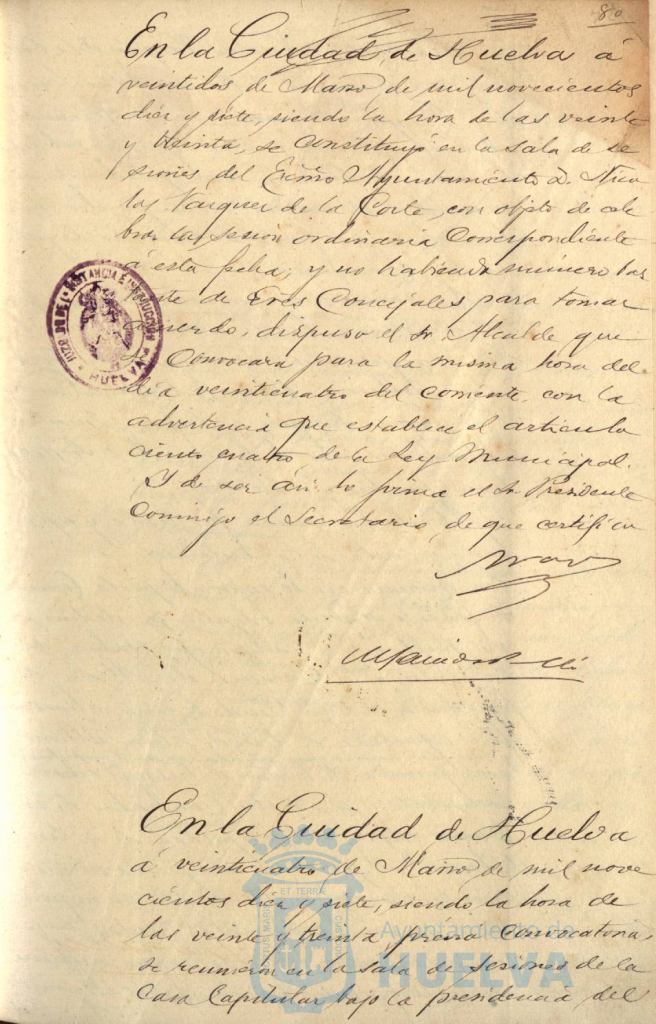 80
En la Ciudad de Huelva á
veintidos de Marzo de mil novecientos
diez y siete, siendo la hora de las veinte
y treinta, se constituyó en la sala de se
siones del Excmo Ayuntamiento D. Nico
las Vazquez de la Corte, con objeto de cele
brar la sesion ordinaria correspondiente
á esta fecha; y no habiendo número bas
te de Eres Concejales para tomar
uerdo, dispuso el Sr. Alcalde que
convocara para la misma hora del
día veinticuatro del corriente, con la
advertencia que establece el articulo
ciento cuatro de la Ley Municipal.
Y de ser asi lo firma el Sr Presidente
conmigo el Secretario, de que certifico
JUZGDO DE 1ª INSTANCIA É INSTRUCCION
HUELVA
En la Ciudad de Huelva
á veinticuatro de Marzo de mil nove
cientos diez y siete, siendo la hora de
las veinte y treinta, prévia convocatoria,
se reunen en la sala de sesiones de la
Casa Capitular bajo la presidencia del
Ayuntamiento de
HUELVA